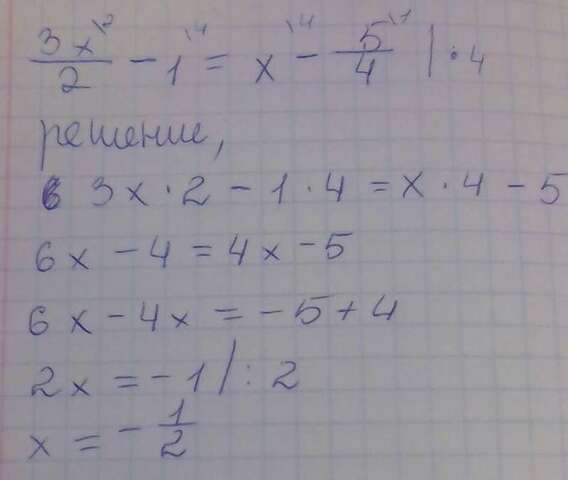 3x\2/2 - 1\4 = x\4 - 5\1/4 | · 4
решение,
3x · 2 - 1 · 4 = x · 4 - 5
6x - 4 = 4x - 5
6x - 4x = -5 + 4
2x = -1 | : 2
x = - 1/2